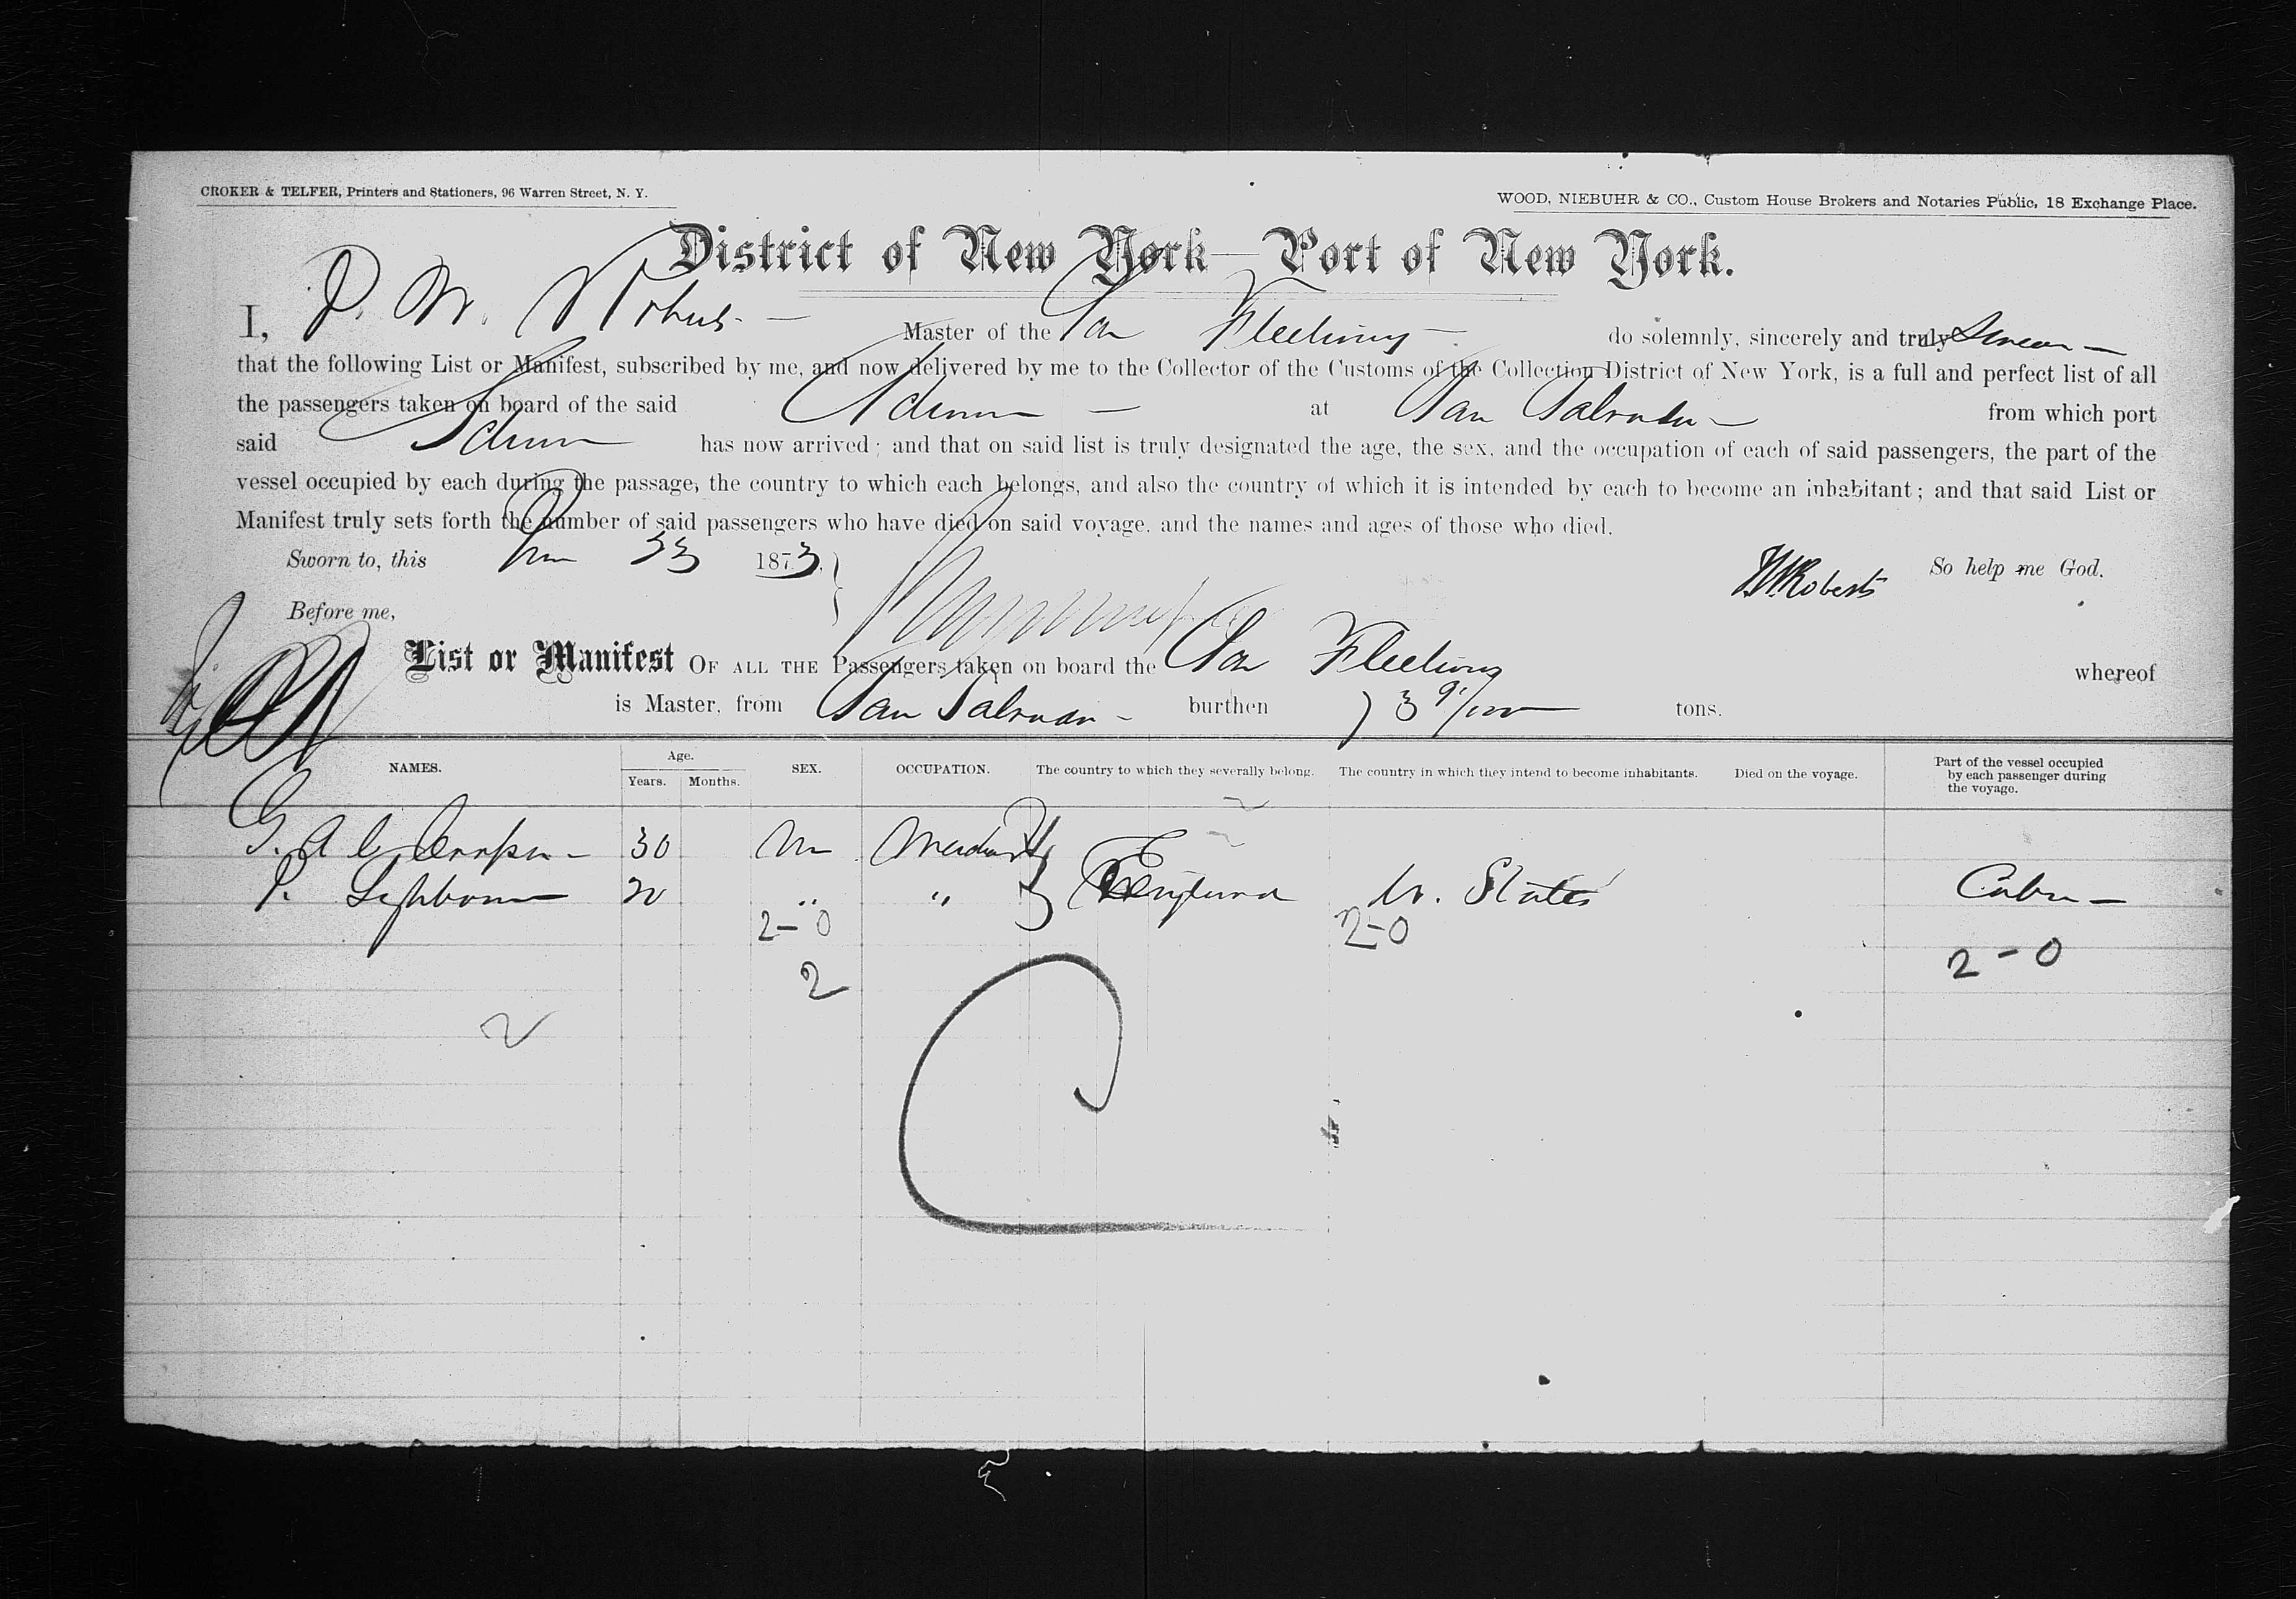 CROKER & TELFER, Printers and Stationers, 96 Warren Street, N. Y.
WOOD, NIEBUHR & CO., Custom House Brokers and Notaries Public, 18 Exchange Place.
District of New York—Port of New York.
I, Master of the do solemnly, sincerely and truly swear —
that the following List or Manifest, subscribed by me, and now delivered by me to the Collector of the Customs of the Collection District of New York, is a full and perfect list of all
the passengers taken on board of the said Schnr — at San Salvador — from which port
said Schnr has now arrived; and that on said list is truly designated the age, the sex, and the occupation of each of said passengers, the part of the
vessel occupied by each during the passage, the country to which each belongs, and also the country of which it is intended by each to become an inhabitant; and that said List or
Manifest truly sets forth the number of said passengers who have died on said voyage, and the names and ages of those who died.
Sworn to, this 1873. So help me God.
Roberts
Before me,
List or Manifest OF ALL THE Passengers taken on board the whereof
is Master, from San Salvador — burthen tons.
NAMES. Age. Years. Months. SEX. OCCUPATION. The country to which they severally belong. The country in which they intend to become inhabitants. Died on the voyage. Part of the vessel occupied by each passenger during the voyage.
G. A. 30 M
P. 20 " " England U. States Cabin —
2-0 2-0
2 2-0
2